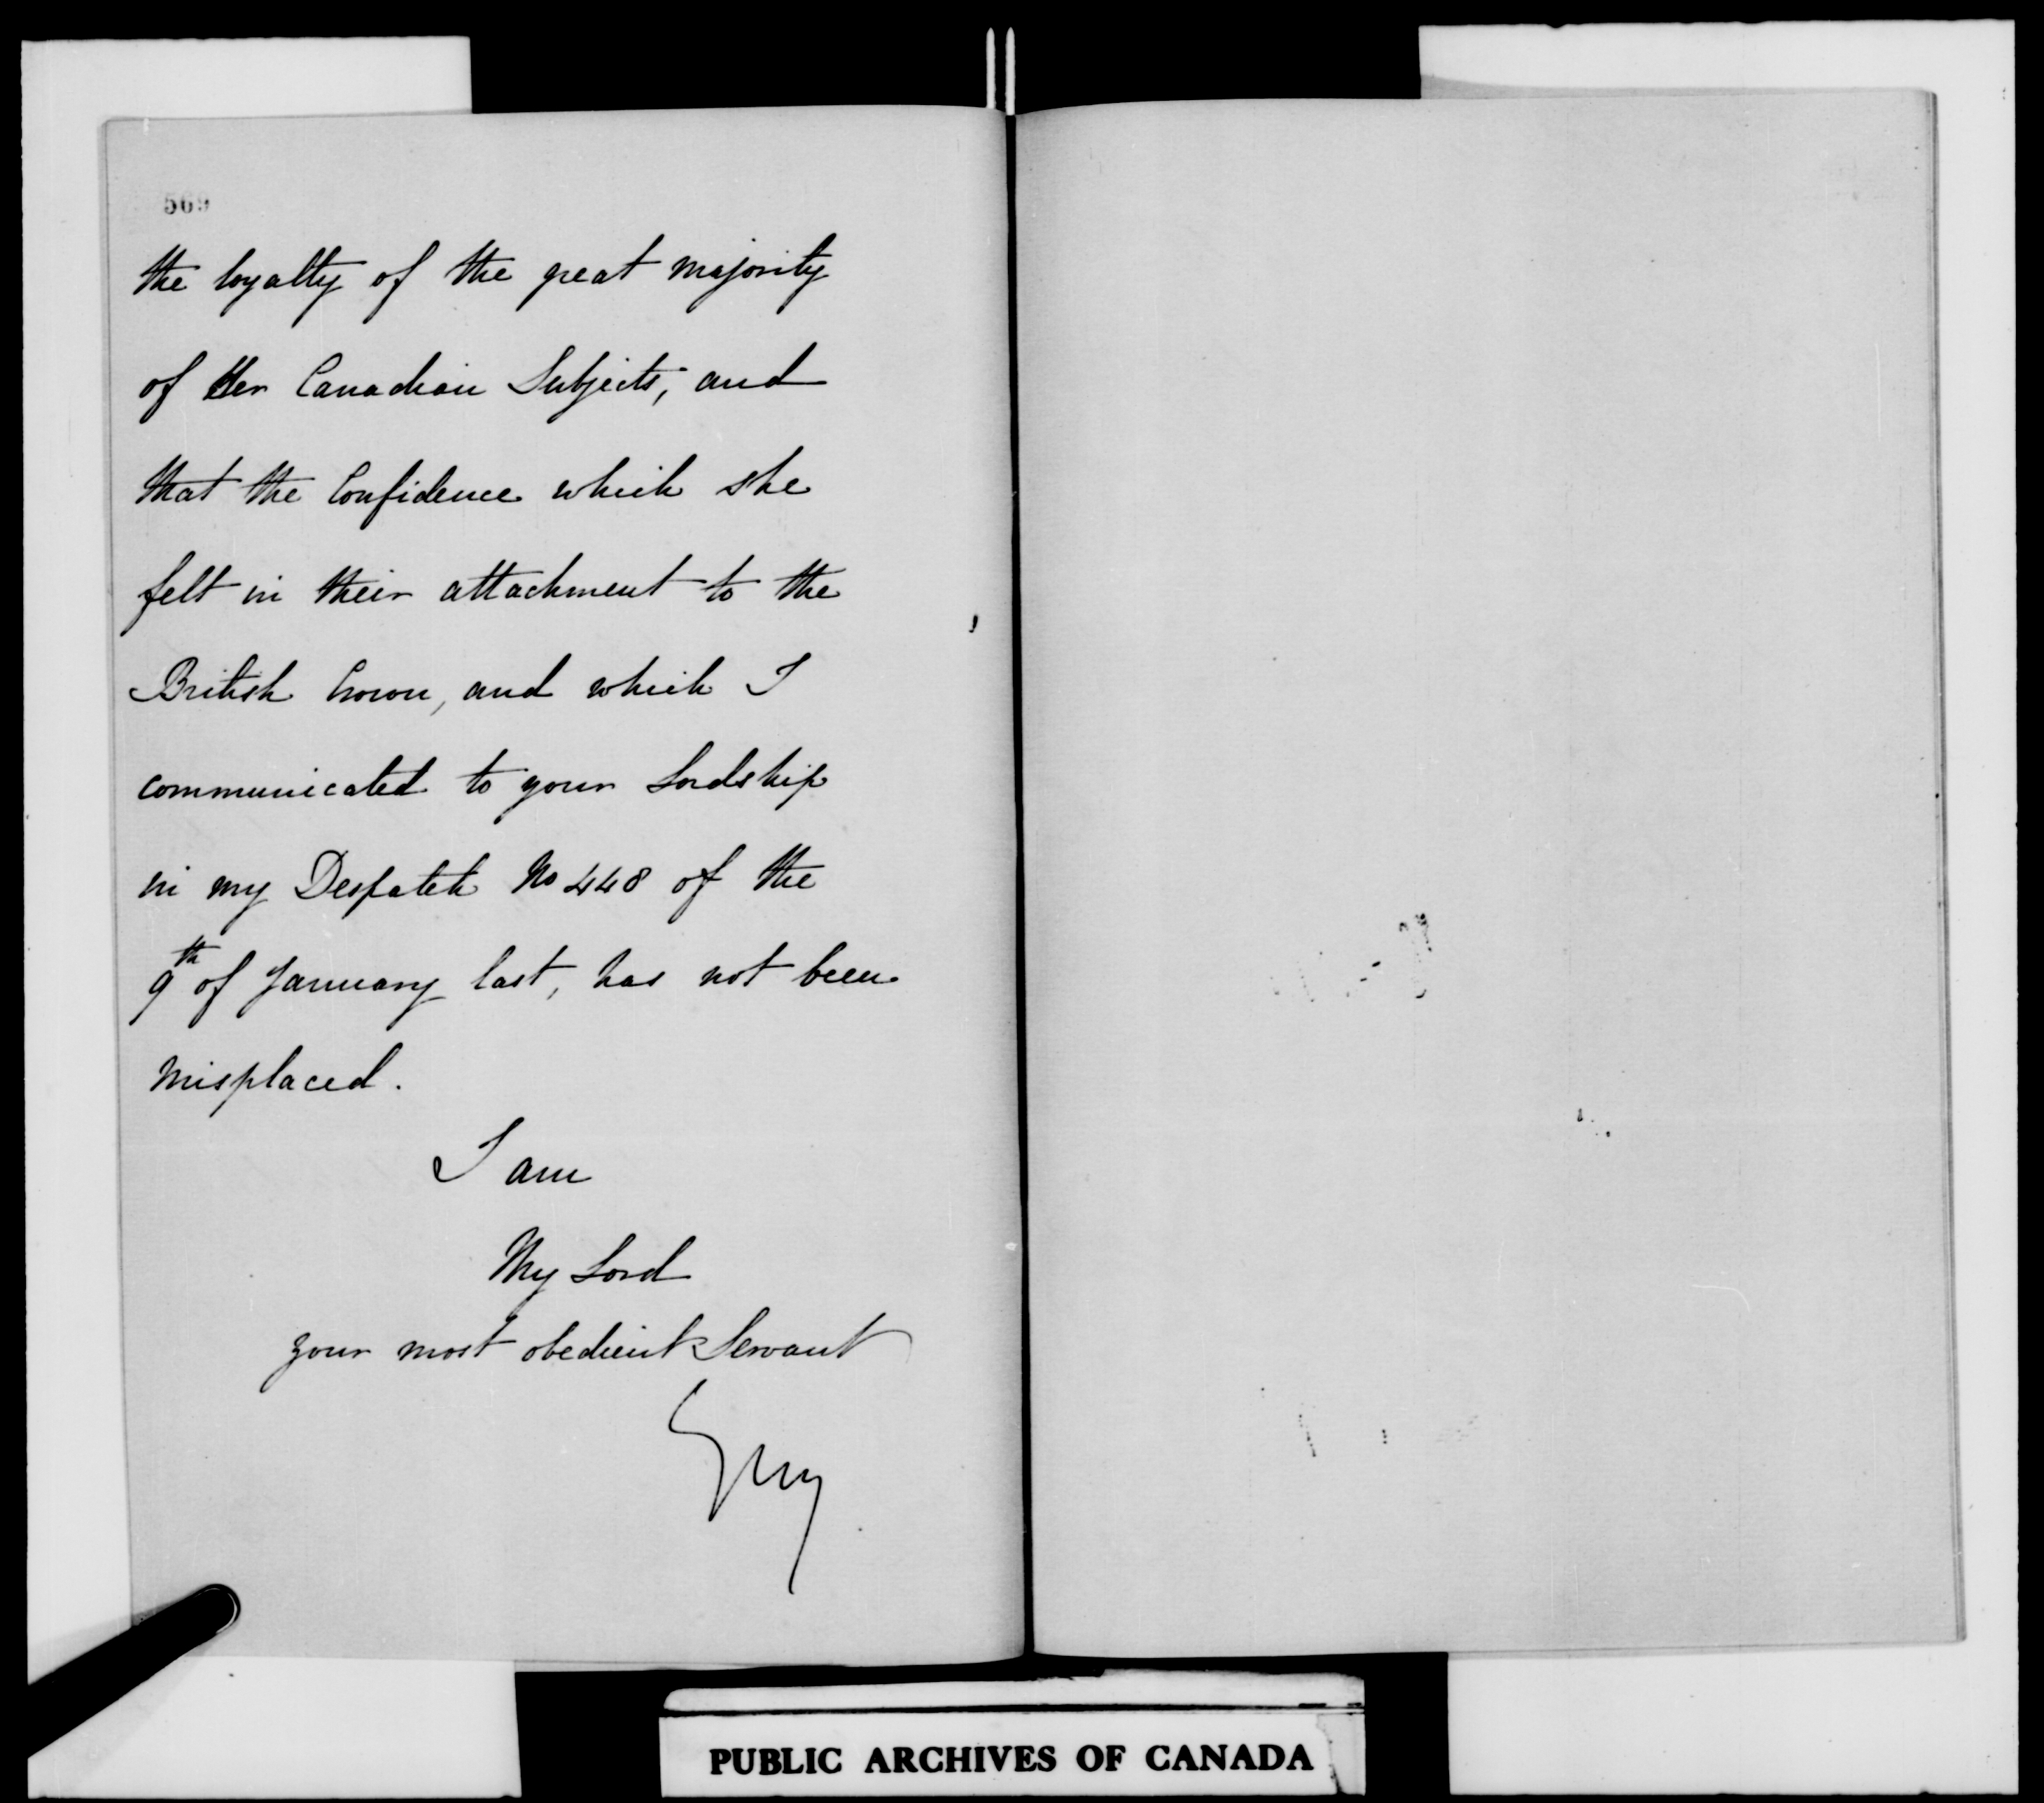 569
the loyalty of the great majority
of Her Canadian Subjects, and
that the Confidence which she
felt in their attachment to the
British Crown, and which I
communicated to your Lordship
in my Despatch No 448 of the
9th of January last, has not been
misplaced.
I am
My Lord
your most obedient Servant
Grey
PUBLIC ARCHIVES OF CANADA